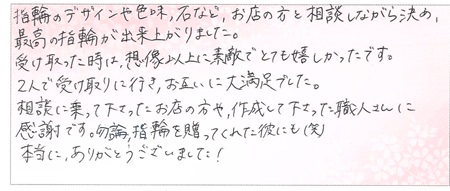 指輪のデザインや色味、石など、お店の方と相談しながら決め、
最高の指輪が出来上がりました。
受け取った時は、想像以上に素敵でとても嬉しかったです。
2人で受け取りに行き、お互いに大満足でした。
相談に乗って下さったお店の方や、作成して下さった職人さんに
感謝です。勿論、指輪を贈ってくれた彼にも(笑)
本当に、ありがとうございました!